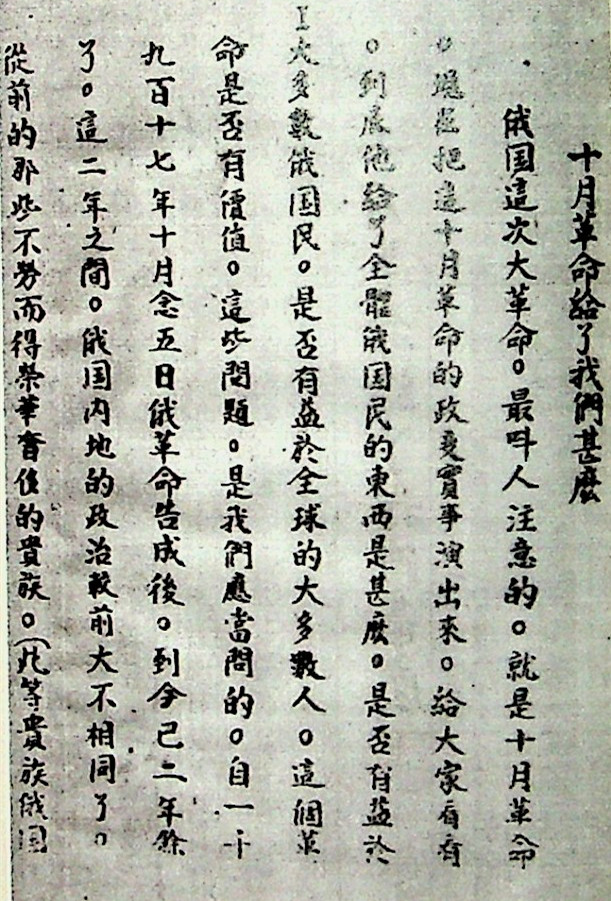 十月革命給了我們甚麽
俄国這次大革命。最叫人注意的。就是十月革命
。把這十月革命的政变實事演出來。給大家看看
。到底他給了全體俄国民的東西是甚麽。是否有益於
大多數俄国民。是否有益於全球的大多數人。這個革
命是否有價值。這些問題。是我們應當問的。自一千
九百十七年十月念五日俄革命告成後。到今已二年餘
了。這二年之間。俄国内地的政治較前大不相同了。
從前的那些不勞而得榮華奢侈的貴族。(此等貴族俄国